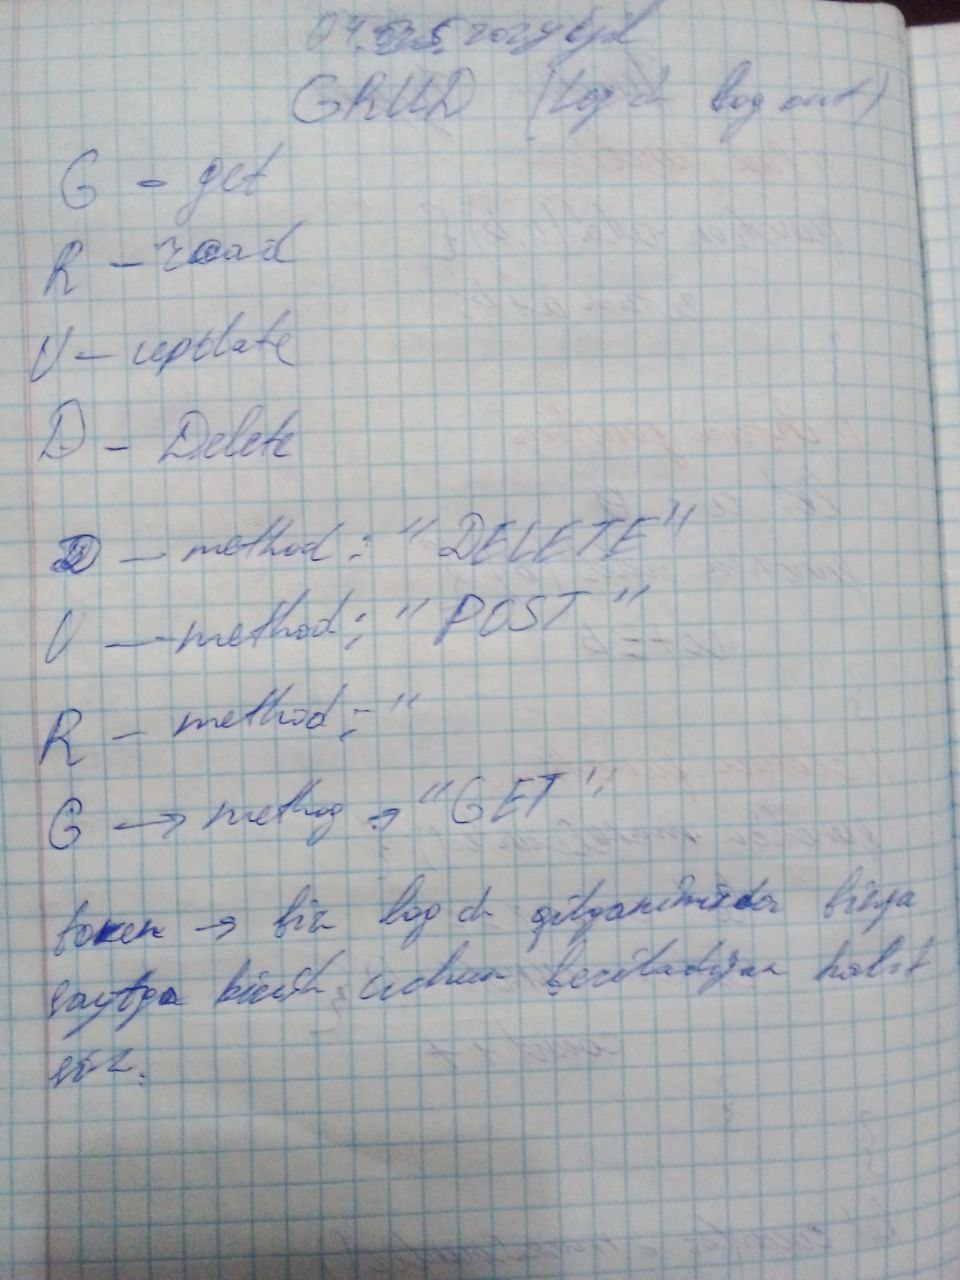 GRUD (Log in log out)
G - get
R - read
U - update
D - Delete
D - method: "DELETE"
U - method: "POST"
R - method: "
G → method → "GET"
token → biz log in qilganimizda bizga
saytga kirish uchun beriladigan kalit
so'z.